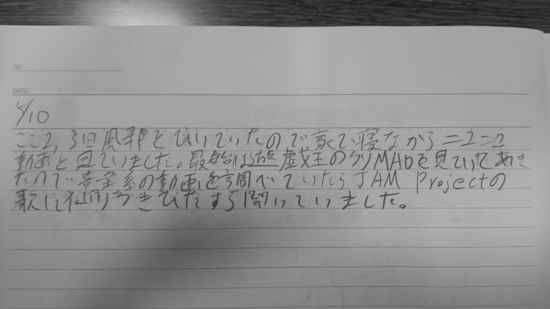 No.
DATE
4/10
ここ2,3日風邪をひいていたので家で寝ながらニコニコ
動画を見ていました。最初は 虚
のクソMADを見ていてあき
たので音楽系の動画を調べていたらJAM Projectの
歌に ひたすら聞いていました。